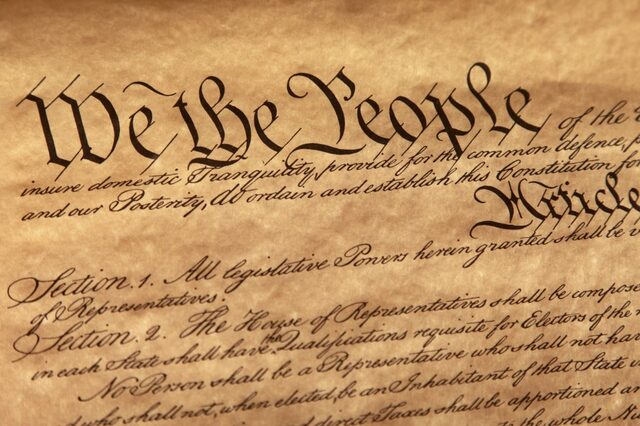 We the People of the
insure domestic Tranquility, provide for the common defence,
and our Posterity, do ordain and establish this Constitution for
Article
Section. 1. All legislative Powers herein granted shall be
of Representatives.
Section. 2. The House of Representatives shall be compose
in each State shall have the Qualifications requisite for Electors of the
No Person shall be a Representative who shall not hav
who shall not, when elected, be an Inhabitant of that State
direct Taxes shall be apportioned a
the whole Nu